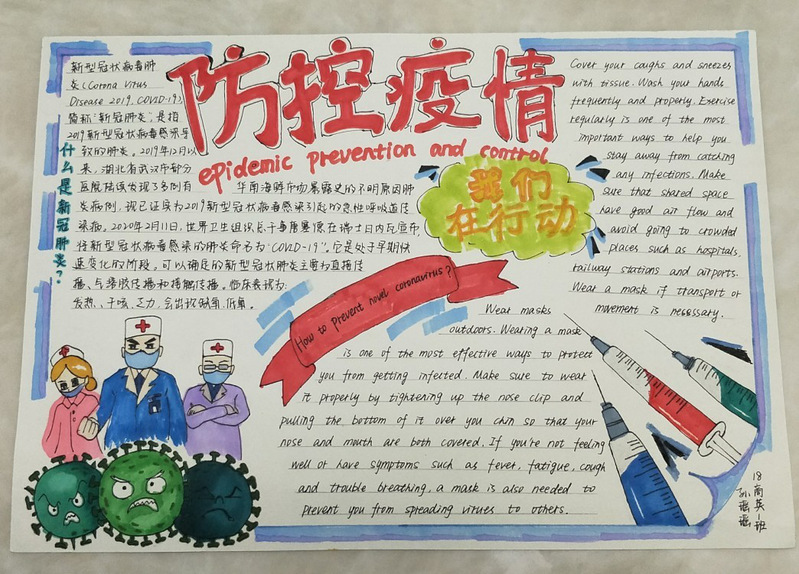 防控疫情
epidemic prevention and control
我们
在行动
什么是新冠肺炎?
新型冠状病毒肺
炎(Corona Virus
Disease 2019, COVID-19)
简称"新冠肺炎",是指
2019新型冠状病毒感染导
致的肺炎。2019年12月以
来,湖北省武汉市部分
医院陆续发现了多例有
华南海鲜市场暴露史的不明原因肺
炎病例,现已证实为2019新型冠状病毒感染引起的急性呼吸道传
染病。2020年2月11日,世界卫生组织总干事谭德塞在瑞士日内瓦宣布,
将新型冠状病毒感染的肺炎命名为"COVID-19"。它是处于早期快
速变化的阶段,可以确定的新型冠状肺炎主要为直接传
播、气溶胶传播和接触传播。临床表现为:
发热、干咳、乏力,会出现
Cover your caughs and sneezes
with tissue. Wash your hands
frequently and properly. Exercise
regularly is one of the most
important ways to help you
stay away from catching
any infections. Make
sure that shared space
have good air flow and
avoid going to crowded
places such as hospitals,
railway stations and airports.
Wear a mask if transport or
movement is necessary.
How to prevent novel coronavirus?
Wear masks
outdoors. Wearing a mask
is one of the most effective ways to protect
you from getting infected. Make sure to wear
it properly by tightening up the nose clip and
pulling the bottom of it over you chin so that your
nose and mouth are both covered. If you're not feeling
well or have symptoms such as fever, fatigue, cough
and trouble breathing, a mask is also needed to
prevent you from spreading viruses to others.
18商英1班
孙瑶瑶